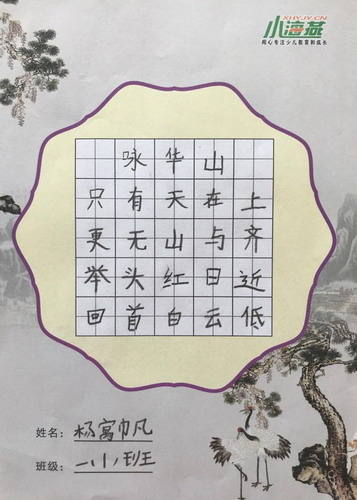 XHYJY.CN
小海燕
用心专注少儿教育和成长
咏华山
只有天在上
更无山与齐
举头红日近
回首白云低
姓名：杨寓巾凡
班级：一小1班